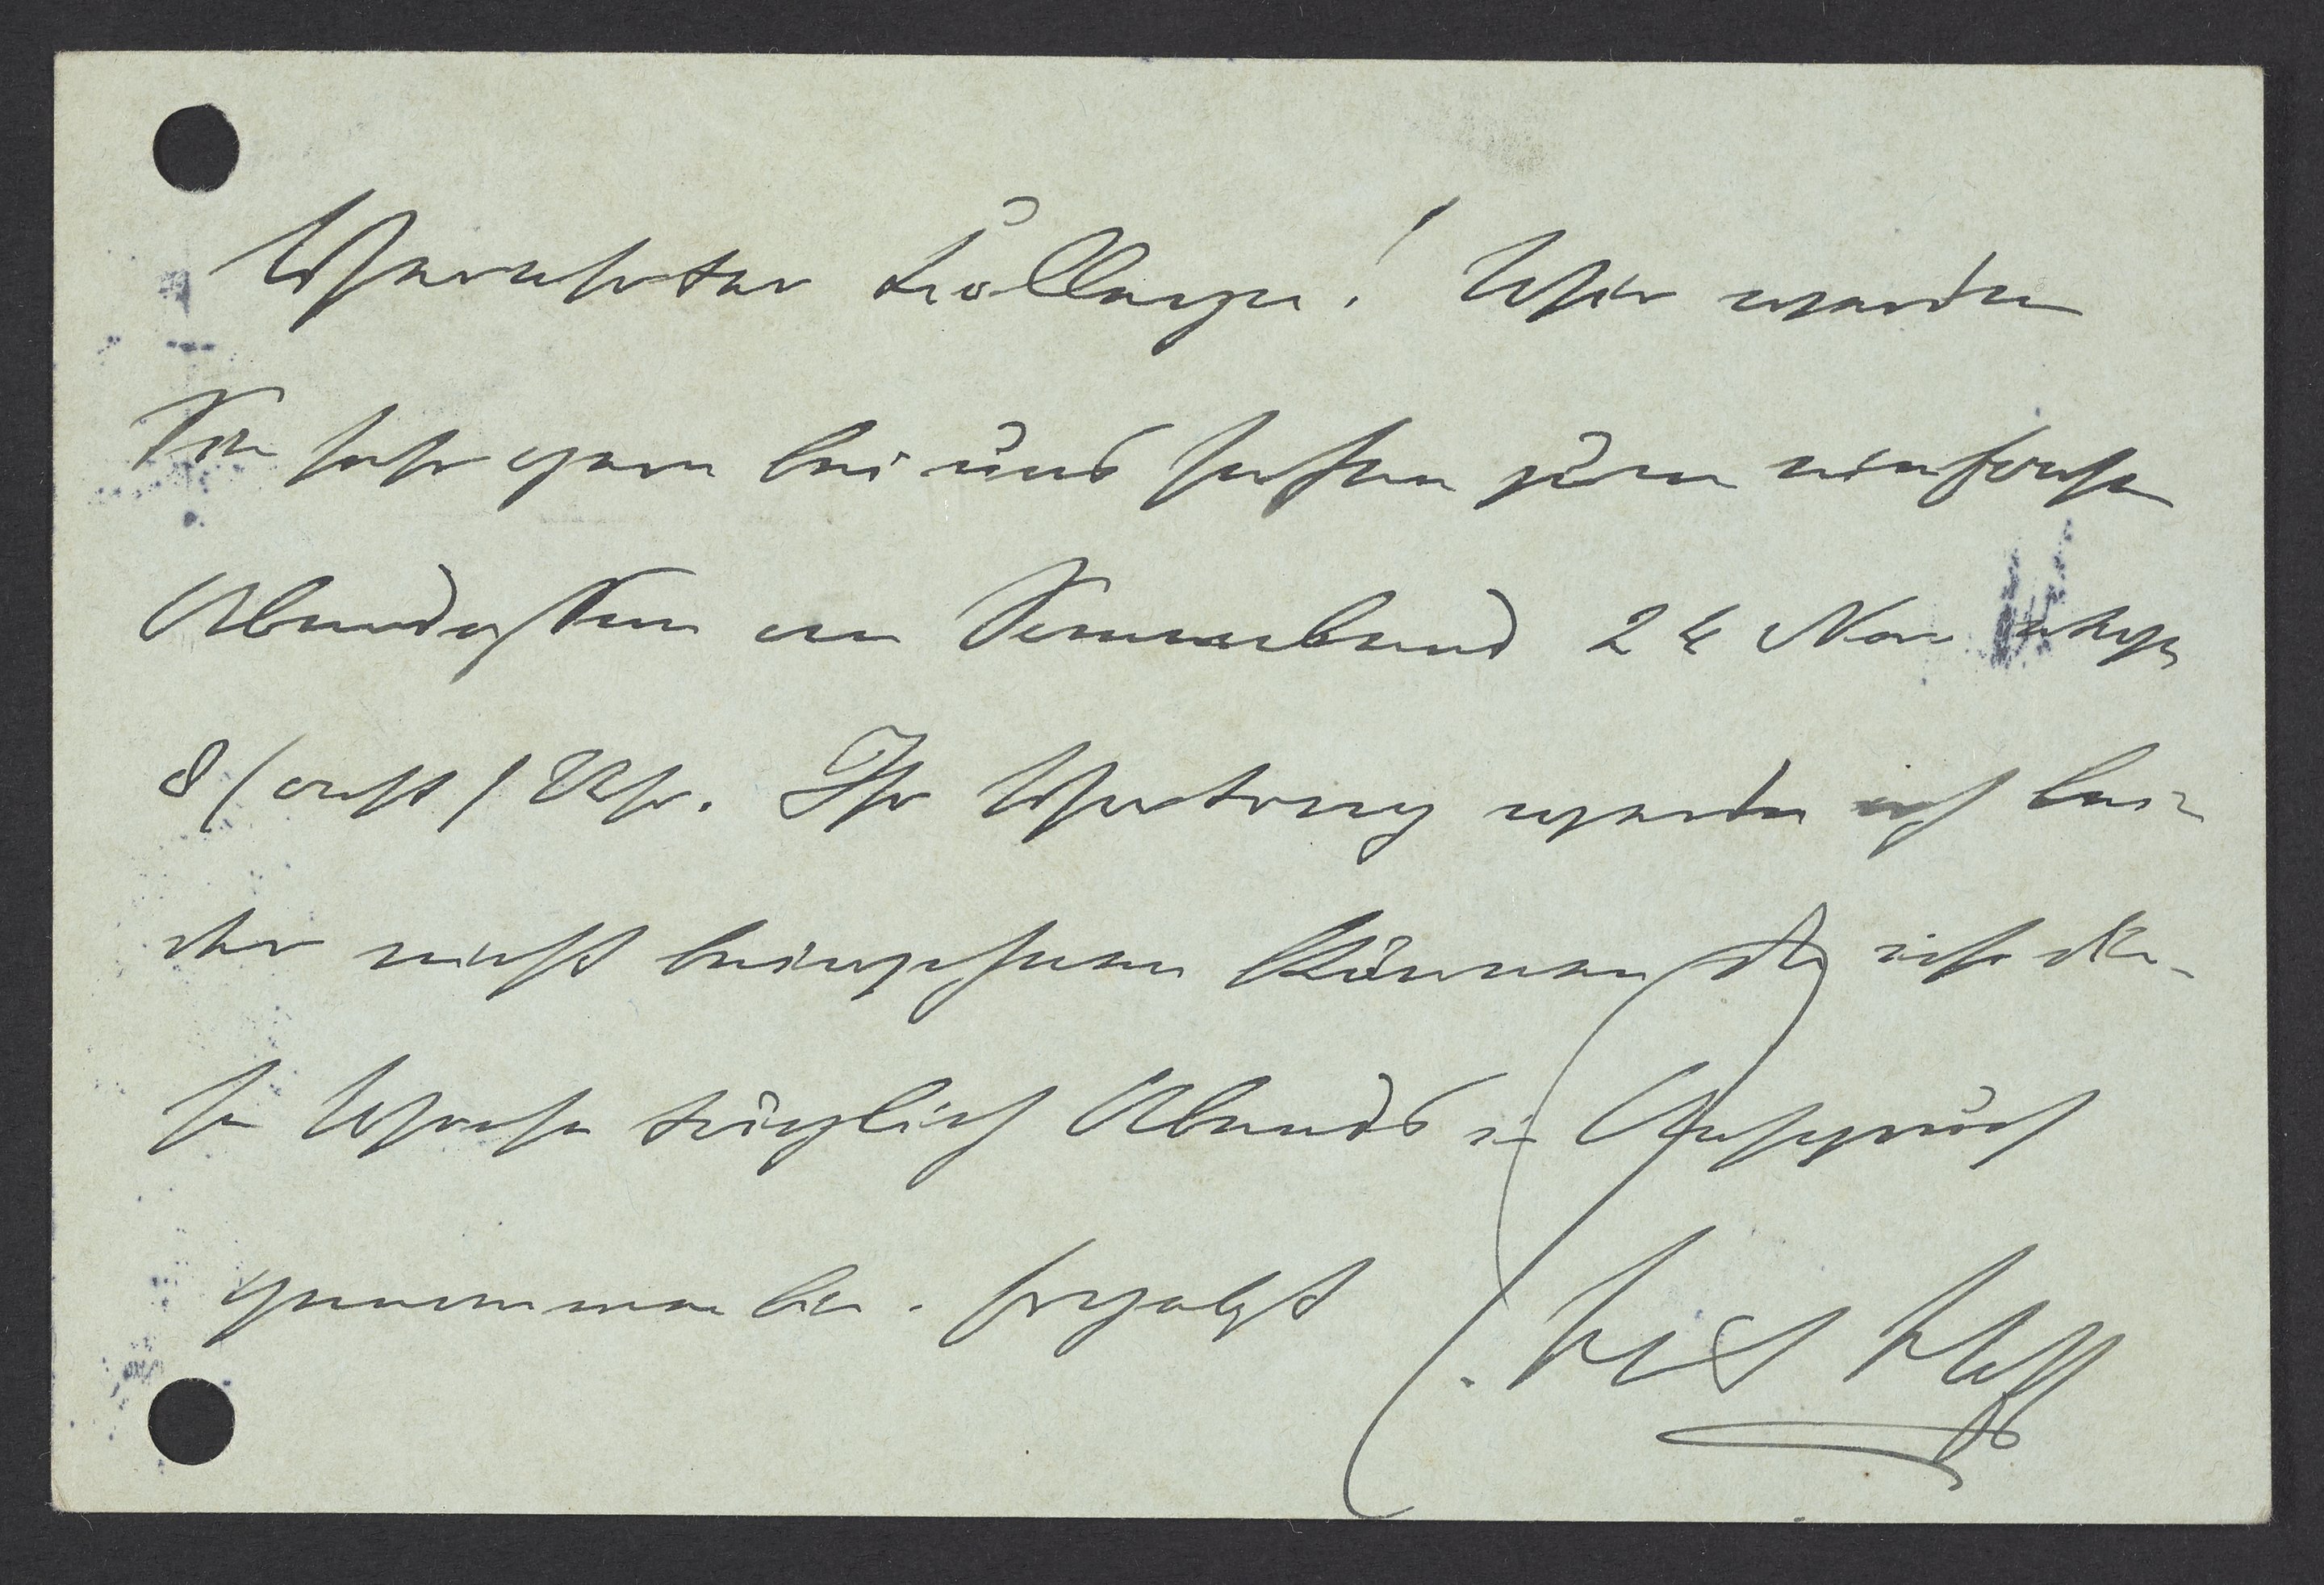 Verehrter College! Wir werden
Sie sehr gern bei uns sehen zum einfachen
Abendessen am Sonnabend 24 Nov
8 (acht) Uhr. Ihr Vortrag werde ich lei-
der nicht beiwohnen können da ich die-
se Woche täglich Abends in Anspruch
genommen bin. Ergebst